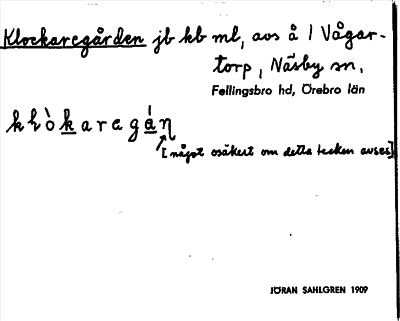 Klockaregården jb kb ml, avs å 1 Vågar-
torp, Näsby sn,
Fellingsbro hd, Örebro län
klòkaregán
[något osäkert om detta tecken avses]
JÖRAN SAHLGREN 1909